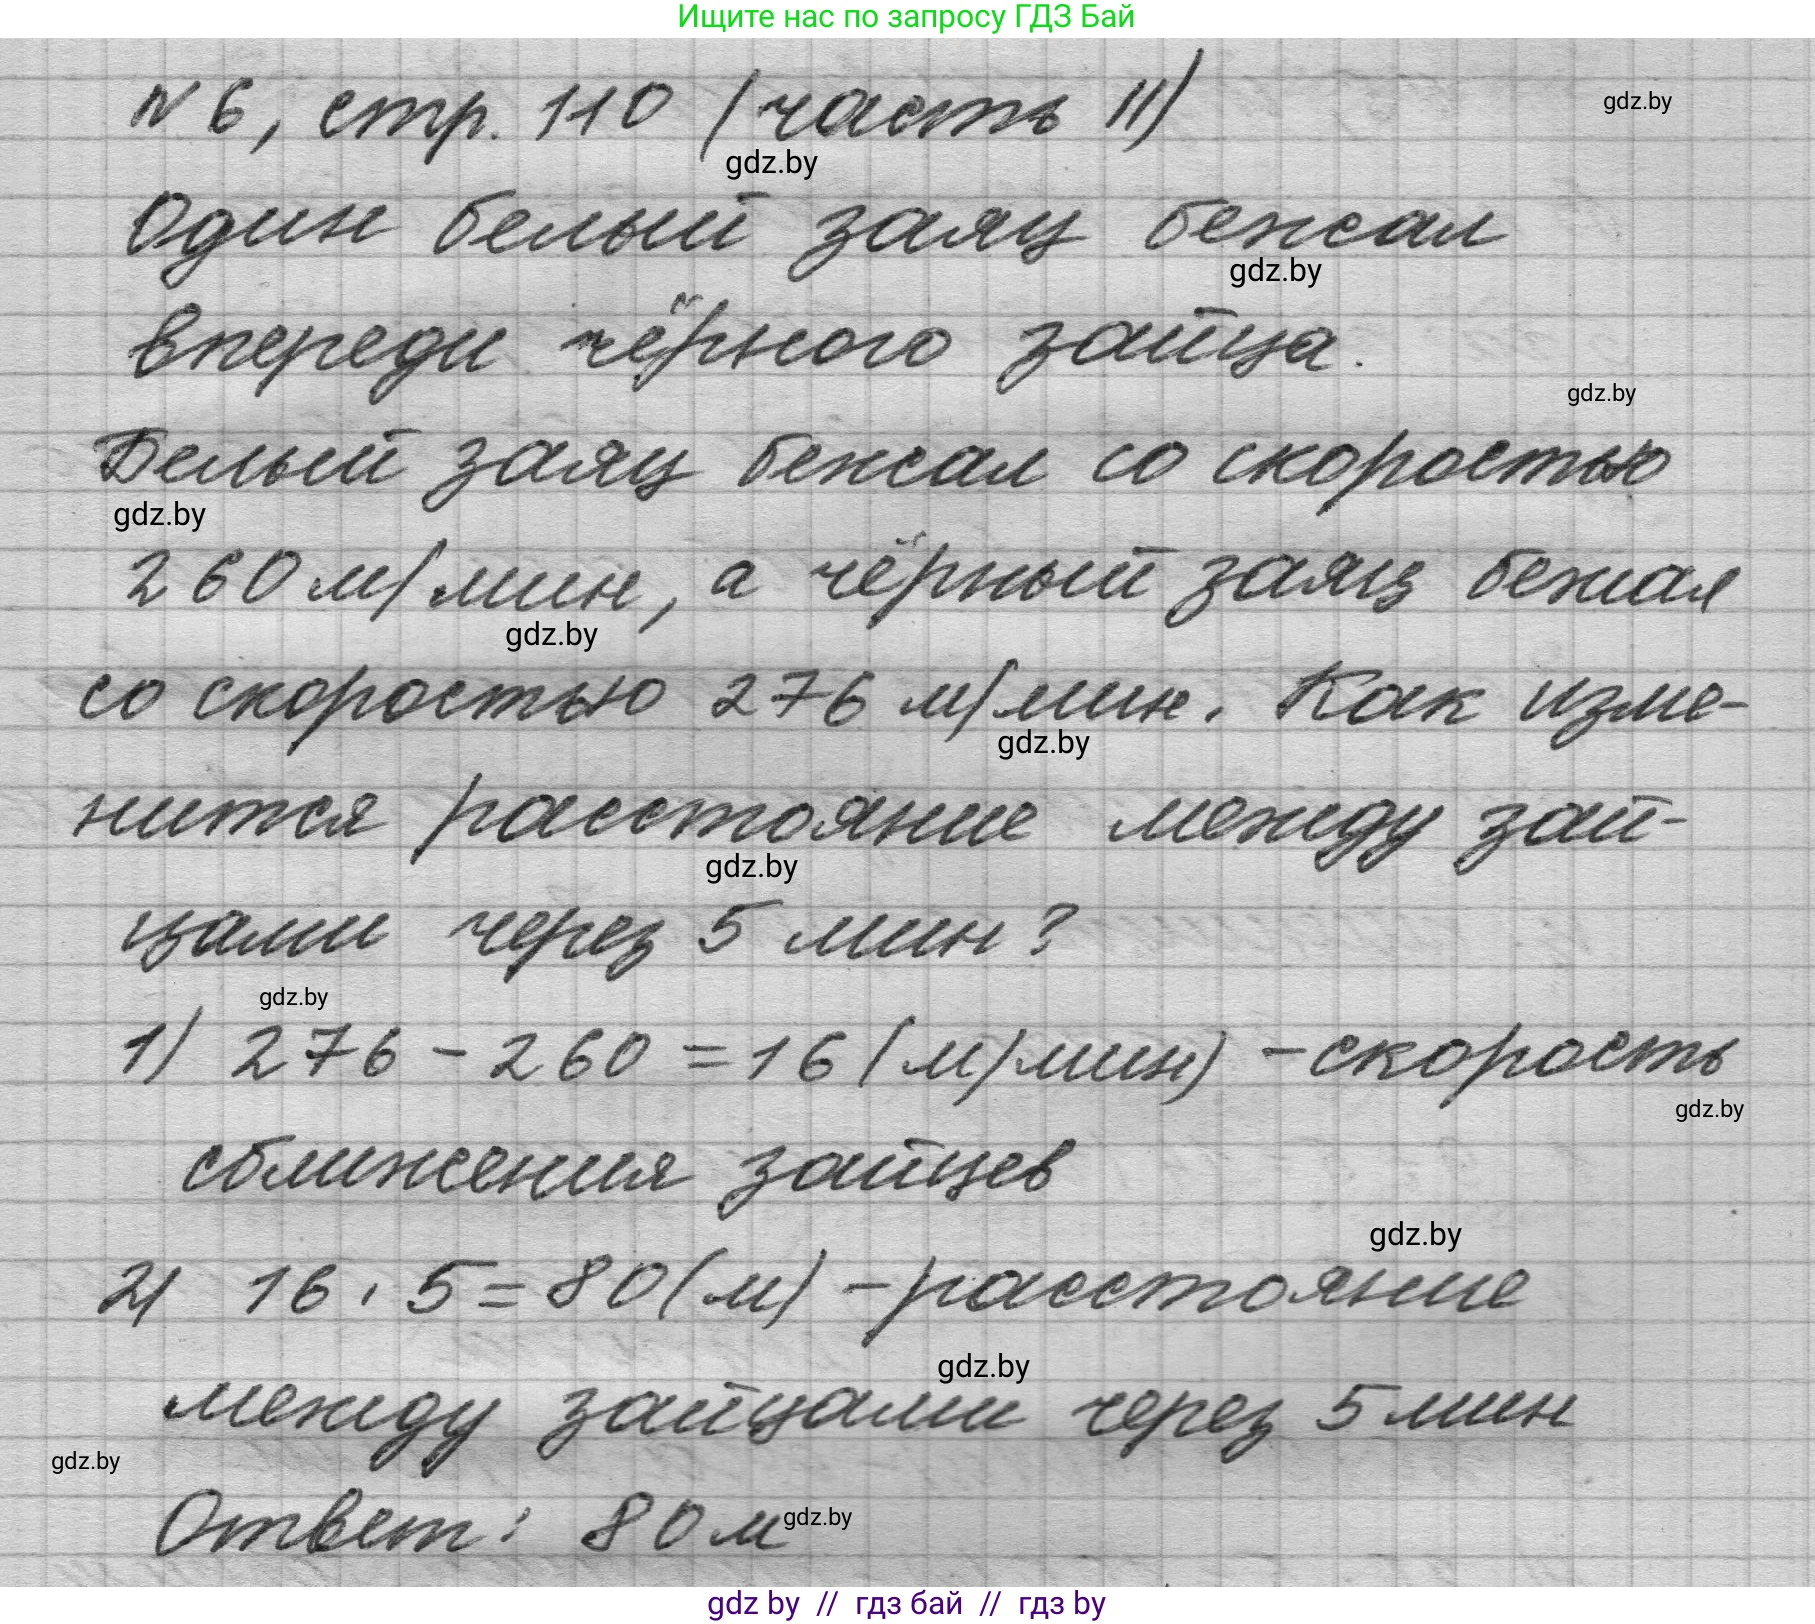 Ищите нас по запросу ГДЗ Бай
N 6, стр. 110 (часть II)
gdz.by
gdz.by
Один белый заяц бежал
gdz.by
впереди чёрного зайца.
gdz.by
Белый заяц бежал со скоростью
gdz.by
260 м/мин, а чёрный заяц бежал
gdz.by
со скоростью 276 м/мин. Как изме-
gdz.by
нится расстояние между зай-
gdz.by
цами через 5 мин?
gdz.by
1) 276 - 260 = 16 (м/мин) - скорость
gdz.by
сближения зайцев
gdz.by
2) 16 · 5 = 80 (м) - расстояние
gdz.by
между зайцами через 5 мин
gdz.by
Ответ: 80 м
gdz.by
gdz by // гдз бай // гдз by